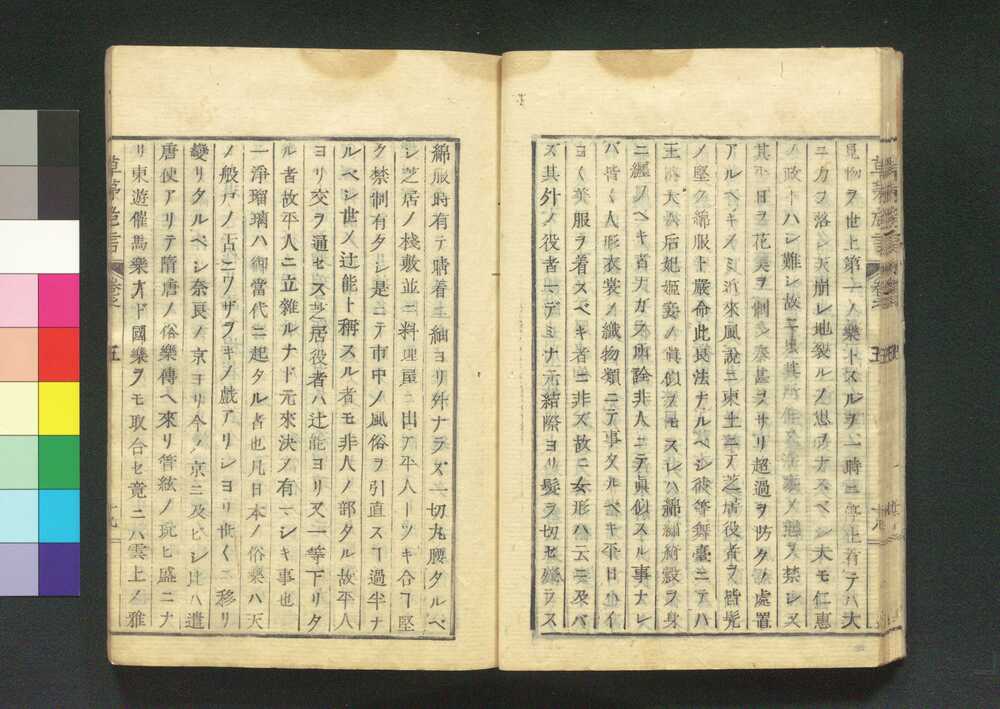 見物ヲ世上第一ノ樂トスルヲ一時ニ禁止有テハ大
ニ力ヲ落シ天崩レ地裂ルノ思ヲナスベシ夫モ仁惠
ノ政トハシ難シ故ニ ノ ヲ禁シ又
其 日ヲ花美ヲ制シ泰甚ヲサリ超過ヲ防クノ處置
アルベキノミ近來風說ニ東土ニテ芝居役者ヲ皆髡
ノ堅ク綿服ト嚴命此良法ナルベシ彼等舞臺ニテハ
王 大 后妃姫妾ノ眞似ヲモスレハ綿繡綺縠ヲ身
ニ纒フベキ者ナガラ所詮非人ニテ眞似スル事ナレ
バ皆々人形衣裳ノ織物類ニテ事タルベキ平日ハイ
ヨ〱美服ヲ着スベキ者ニ非ス故ニ女形ハ云ニ及バ
ズ其外ノ役者一デミナ元結際ヨリ髮ヲ切セ ヲス
草茅危言 卷之 五
綿服時有テ晴着モ紬ヨリ外ナラズ一切丸腰タルベ
シ芝居ノ棧敷並ニ料理屋ニ出テ平人ーツキ合フ堅
ク禁制有タシ是ニテ市中ノ風俗ヲ引直スヿ過半ナ
ルベシ世ノ辻能ト稱スル者モ非人ノ部タル故平人
ヨリ交ヲ通セス芝居役者ハ辻能ヨリ又一等下リタ
ル者故平人ニ立雜ルナド元來決ノ有一シキ事也
一淨瑠璃ハ御當代ニ起タル者也凡日本ノ俗樂ハ天
ノ般戸ノ古ニワザヲキノ戲アリシヨリ世々ニ移リ
變リタルベシ奈良ノ京ヨリ今ノ京ニ及ヒシ比ハ遣
唐使アリテ隋唐ノ俗樂傳ヘ來リ管絃ノ玩ヒ盛ニナ
リ東遊催馬樂ナド國樂ヲモ取合セ竟ニハ雲上ノ雅
草茅危言 卷之 五